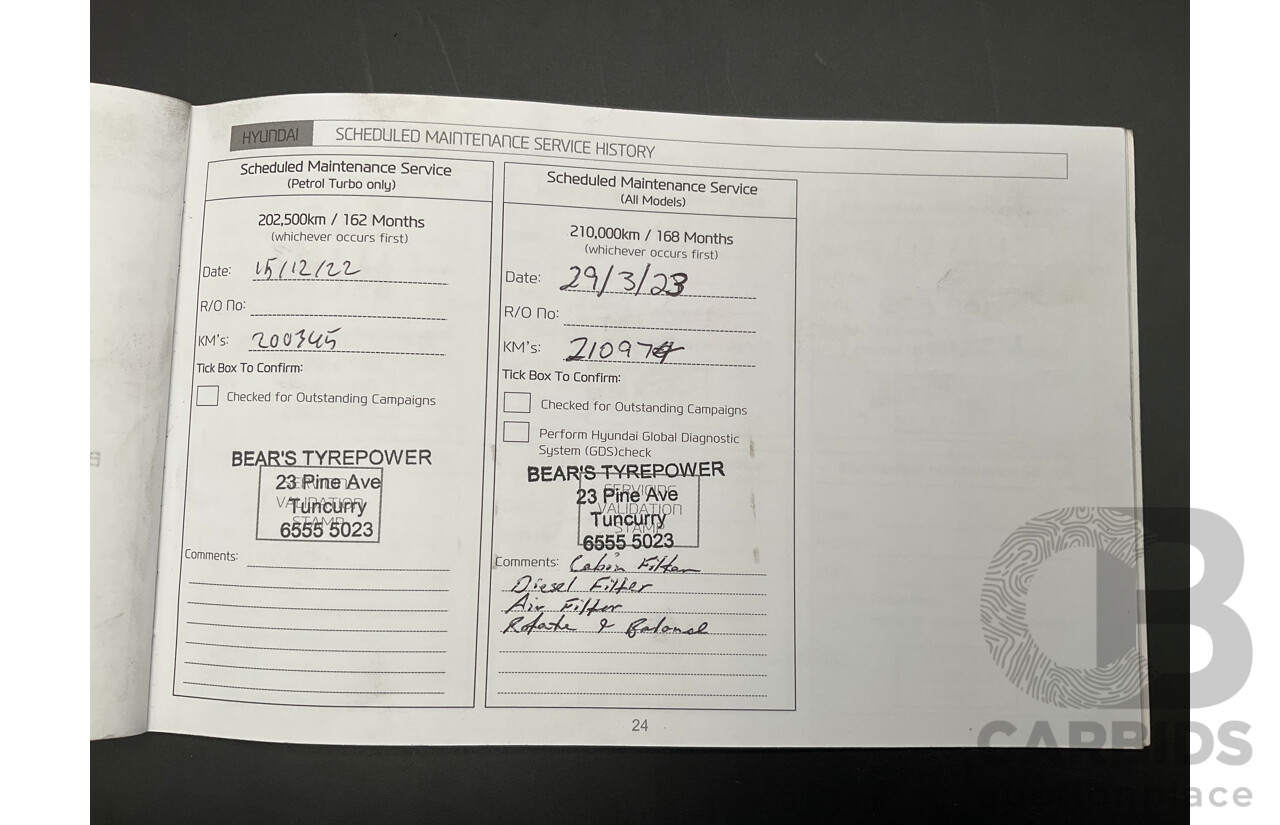 HYUNDAI SCHEDULED MAINTENANCE SERVICE HISTORY
Scheduled Maintenance Service
(Petrol Turbo only)
202,500km / 162 Months
(whichever occurs first)
Date: 15/12/22
R/O No:
KM's: 200345
Tick Box To Confirm:
Checked for Outstanding Campaigns
BEAR'S TYREPOWER
23 Pine Ave
VALIDATION
Tuncurry
STAMP
6555 5023
Comments:
Scheduled Maintenance Service
(All Models)
210,000km / 168 Months
(whichever occurs first)
Date: 29/3/23
R/O No:
KM's: 210974
Tick Box To Confirm:
Checked for Outstanding Campaigns
Perform Hyundai Global Diagnostic
System (GDS)check
BEAR'S TYREPOWER
SERVICING
23 Pine Ave
VALIDATION
Tuncurry
STAMP
6555 5023
Comments: Cabin Filter
Diesel Filter
Air Filter
Rotate & Balance
24
CARBIDS